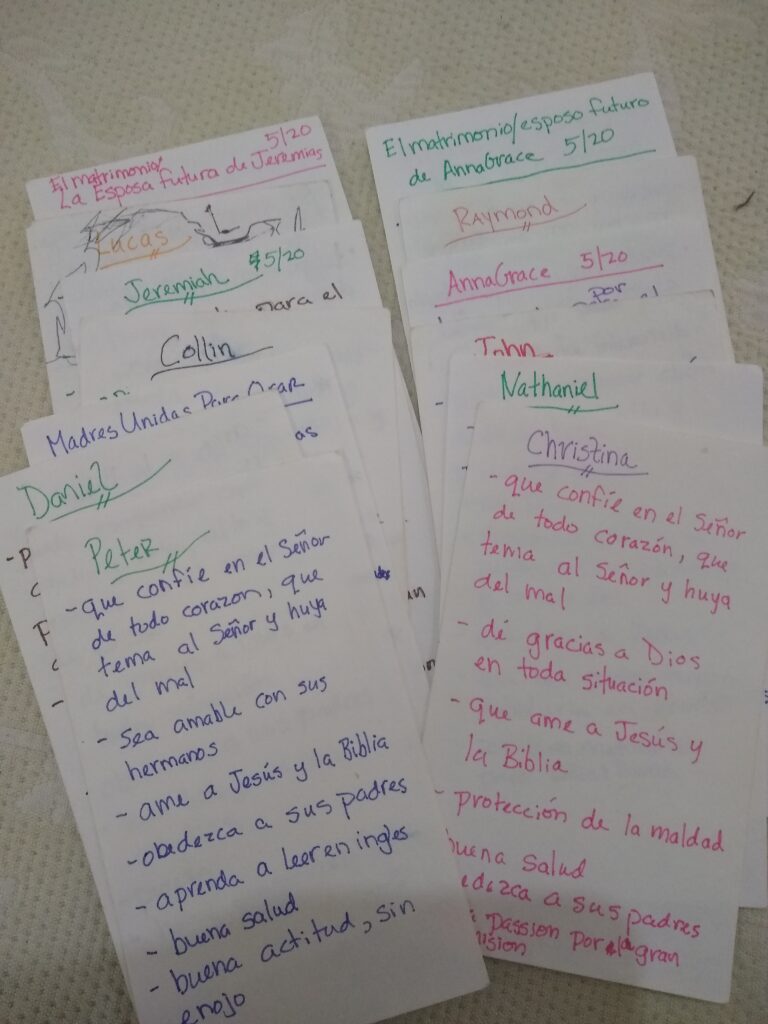 El matrimonio/ 5/20
La Esposa futura de Jeremias
Lucas
Jeremiah 5/20
para el
Collin
Madres Unidas Para Orar
as
Daniel
Peter
- que confíe en el Señor
de todo corazon, que
tema al Señor y huya
del mal
- Sea amable con sus
hermanos
- ame a Jesús y la Biblia
- obedezca a sus padres
- aprenda a leer en ingles
- buena salud
- buena actitud, sin
enojo
El matrimonio/esposo futuro
de AnnaGrace 5/20
Raymond
AnnaGrace 5/20
por
John
Nathaniel
Christina
- que confíe en el Señor
de todo corazón, que
tema al Señor y huya
del mal
- dé gracias a Dios
en toda situación
- que ame a Jesús y
la Biblia
- protección de la maldad
buena salud
edezca a sus padres
passion por la gran
ision